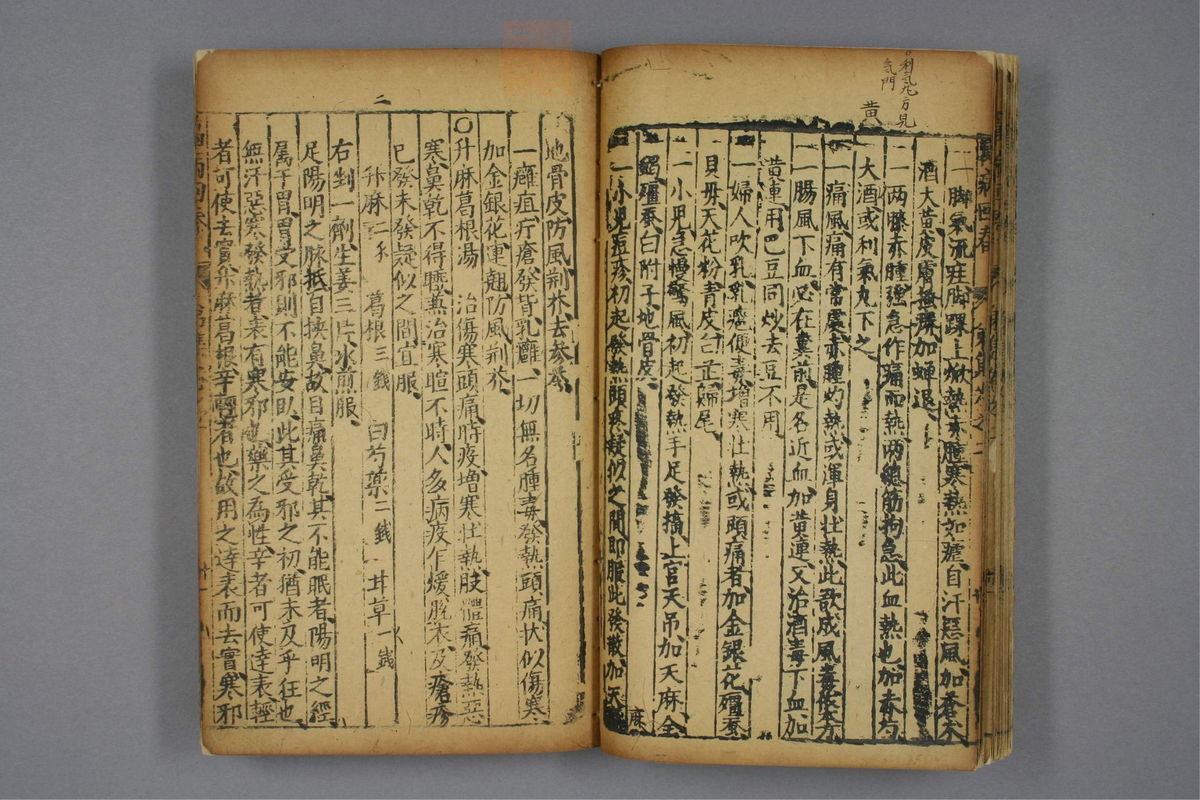 利氣丸方見
氣門
黃
一腳氣流注腳踝上焮熱赤腫寒熱如瘧自汗惡風加蒼朮
酒大黃皮膚搔癢加蟬退
一兩膝赤腫強急作痛而熱兩腿筋拘急此血熱也加赤芍
大酒或利氣丸下之
一痛風痛有常處赤腫灼熱或渾身壯熱此欲成風毒依本方
一腸風下血必在糞前是名近血加黃連又治酒毒下血加
黃連用巴豆同炒去豆不用
一婦人吹乳乳癰便毒增寒壯熱或頭痛者加金銀花殭蚕
貝母天花粉青皮白芷歸尾
一小兒急慢驚風初起發熱手足發搐上宮天吊加天麻全
蝎殭蚕白附子地骨皮
一小兒痘疹初起發熱頭疼疑似之間即服此發散加天麻
二
地骨皮防風荊芥去參苓
一癰疽疔瘡發背乳癰一切無名腫毒發熱頭痛狀似傷寒
加金銀花連翹防風荊芥
○升麻葛根湯 治傷寒頭痛時疫增寒壯熱肢體痛發熱惡
寒鼻乾不得睡兼治寒暄不時人多病疫乍煖脫衣及瘡疹
已發未發疑似之間宜服
升麻二 葛根三錢 白芍藥二錢 甘草一錢
右剉一劑生姜三片水煎服
足陽明之脉抵目挾鼻故目痛鼻乾其不能眠者陽明之經
屬于胃胃受邪則不能安臥此其受邪之初猶未及乎狂也
無汗惡寒發熱者表有寒邪也藥之為性辛者可使達表輕
者可使去實升麻葛根辛輕者也故用之達表而去實寒邪